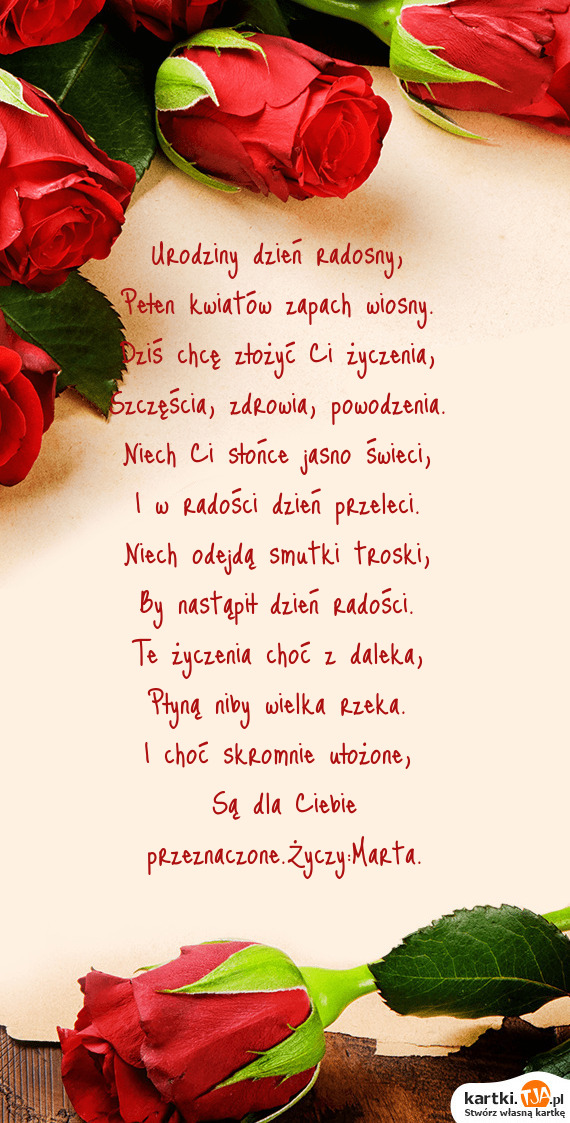 Urodziny dzień radosny,
Pełen kwiatów zapach wiosny.
Dziś chcę złożyć Ci życzenia,
Szczęścia, zdrowia, powodzenia.
Niech Ci słońce jasno świeci,
I w radości dzień przeleci.
Niech odejdą smutki troski,
By nastąpił dzień radości.
Te życzenia choć z daleka,
Płyną niby wielka rzeka.
I choć skromnie ułożone,
Są dla Ciebie
przeznaczone.Życzy:Marta.
kartki.TJA.pl
Stwórz własną kartkę